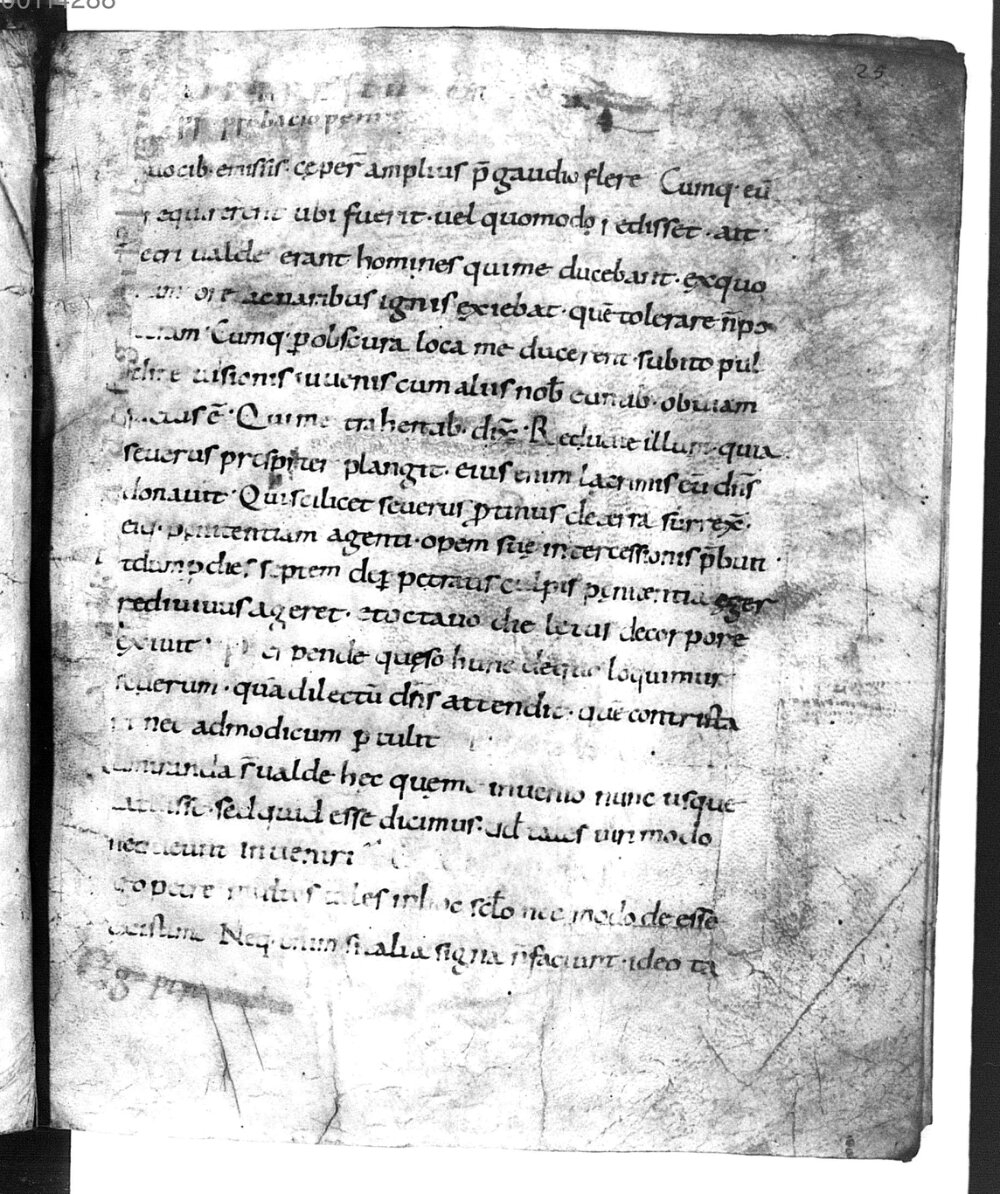 25
probacio penn
uocib· emissis· cęper̄ amplius p̄ gaudio flere Cumq· eū
requirerent ubi fuerit· uel quomodo redisset· ait·
tetri ualde erant homines qui me ducebant· ex quo
ore ac naribus ignis exiebat· quē tolerare n̄ po
Cumq· ꝑ obscura loca me ducerent· subito pul
uisionis iuuenis cum aliis nob̄ euntib· obuiam
ē· Qui me trahentib· dix̄· Reducite illum· quia
seuerus presbiter plangit· eius enim lacrimis eū dn̄s
donauit· Qui scilicet seuerus ꝓtinus de terra surrex̄·
eiq· penitentiam agenti· opem suę intercessionis p̄buit·
dies septem de ꝑpetratis culpis penitentia eger
rediuiuus ageret· et octauo die letus de corpore
exiuit· pende quęso hunc de quo loquimur
seuerum· quā dilectū dn̄s attendit· quē contrista
ri nec ad modicum ꝑtulit
ualde hec quę me inuenio nunc usque
sed quid esse dicimus· qd̄ tales uiri modo
nequeunt inueniri
go petre multos tales in hoc scl̄o nec modo de esse
existimo Neq· enim si talia signa n̄ faciunt· ideo ta